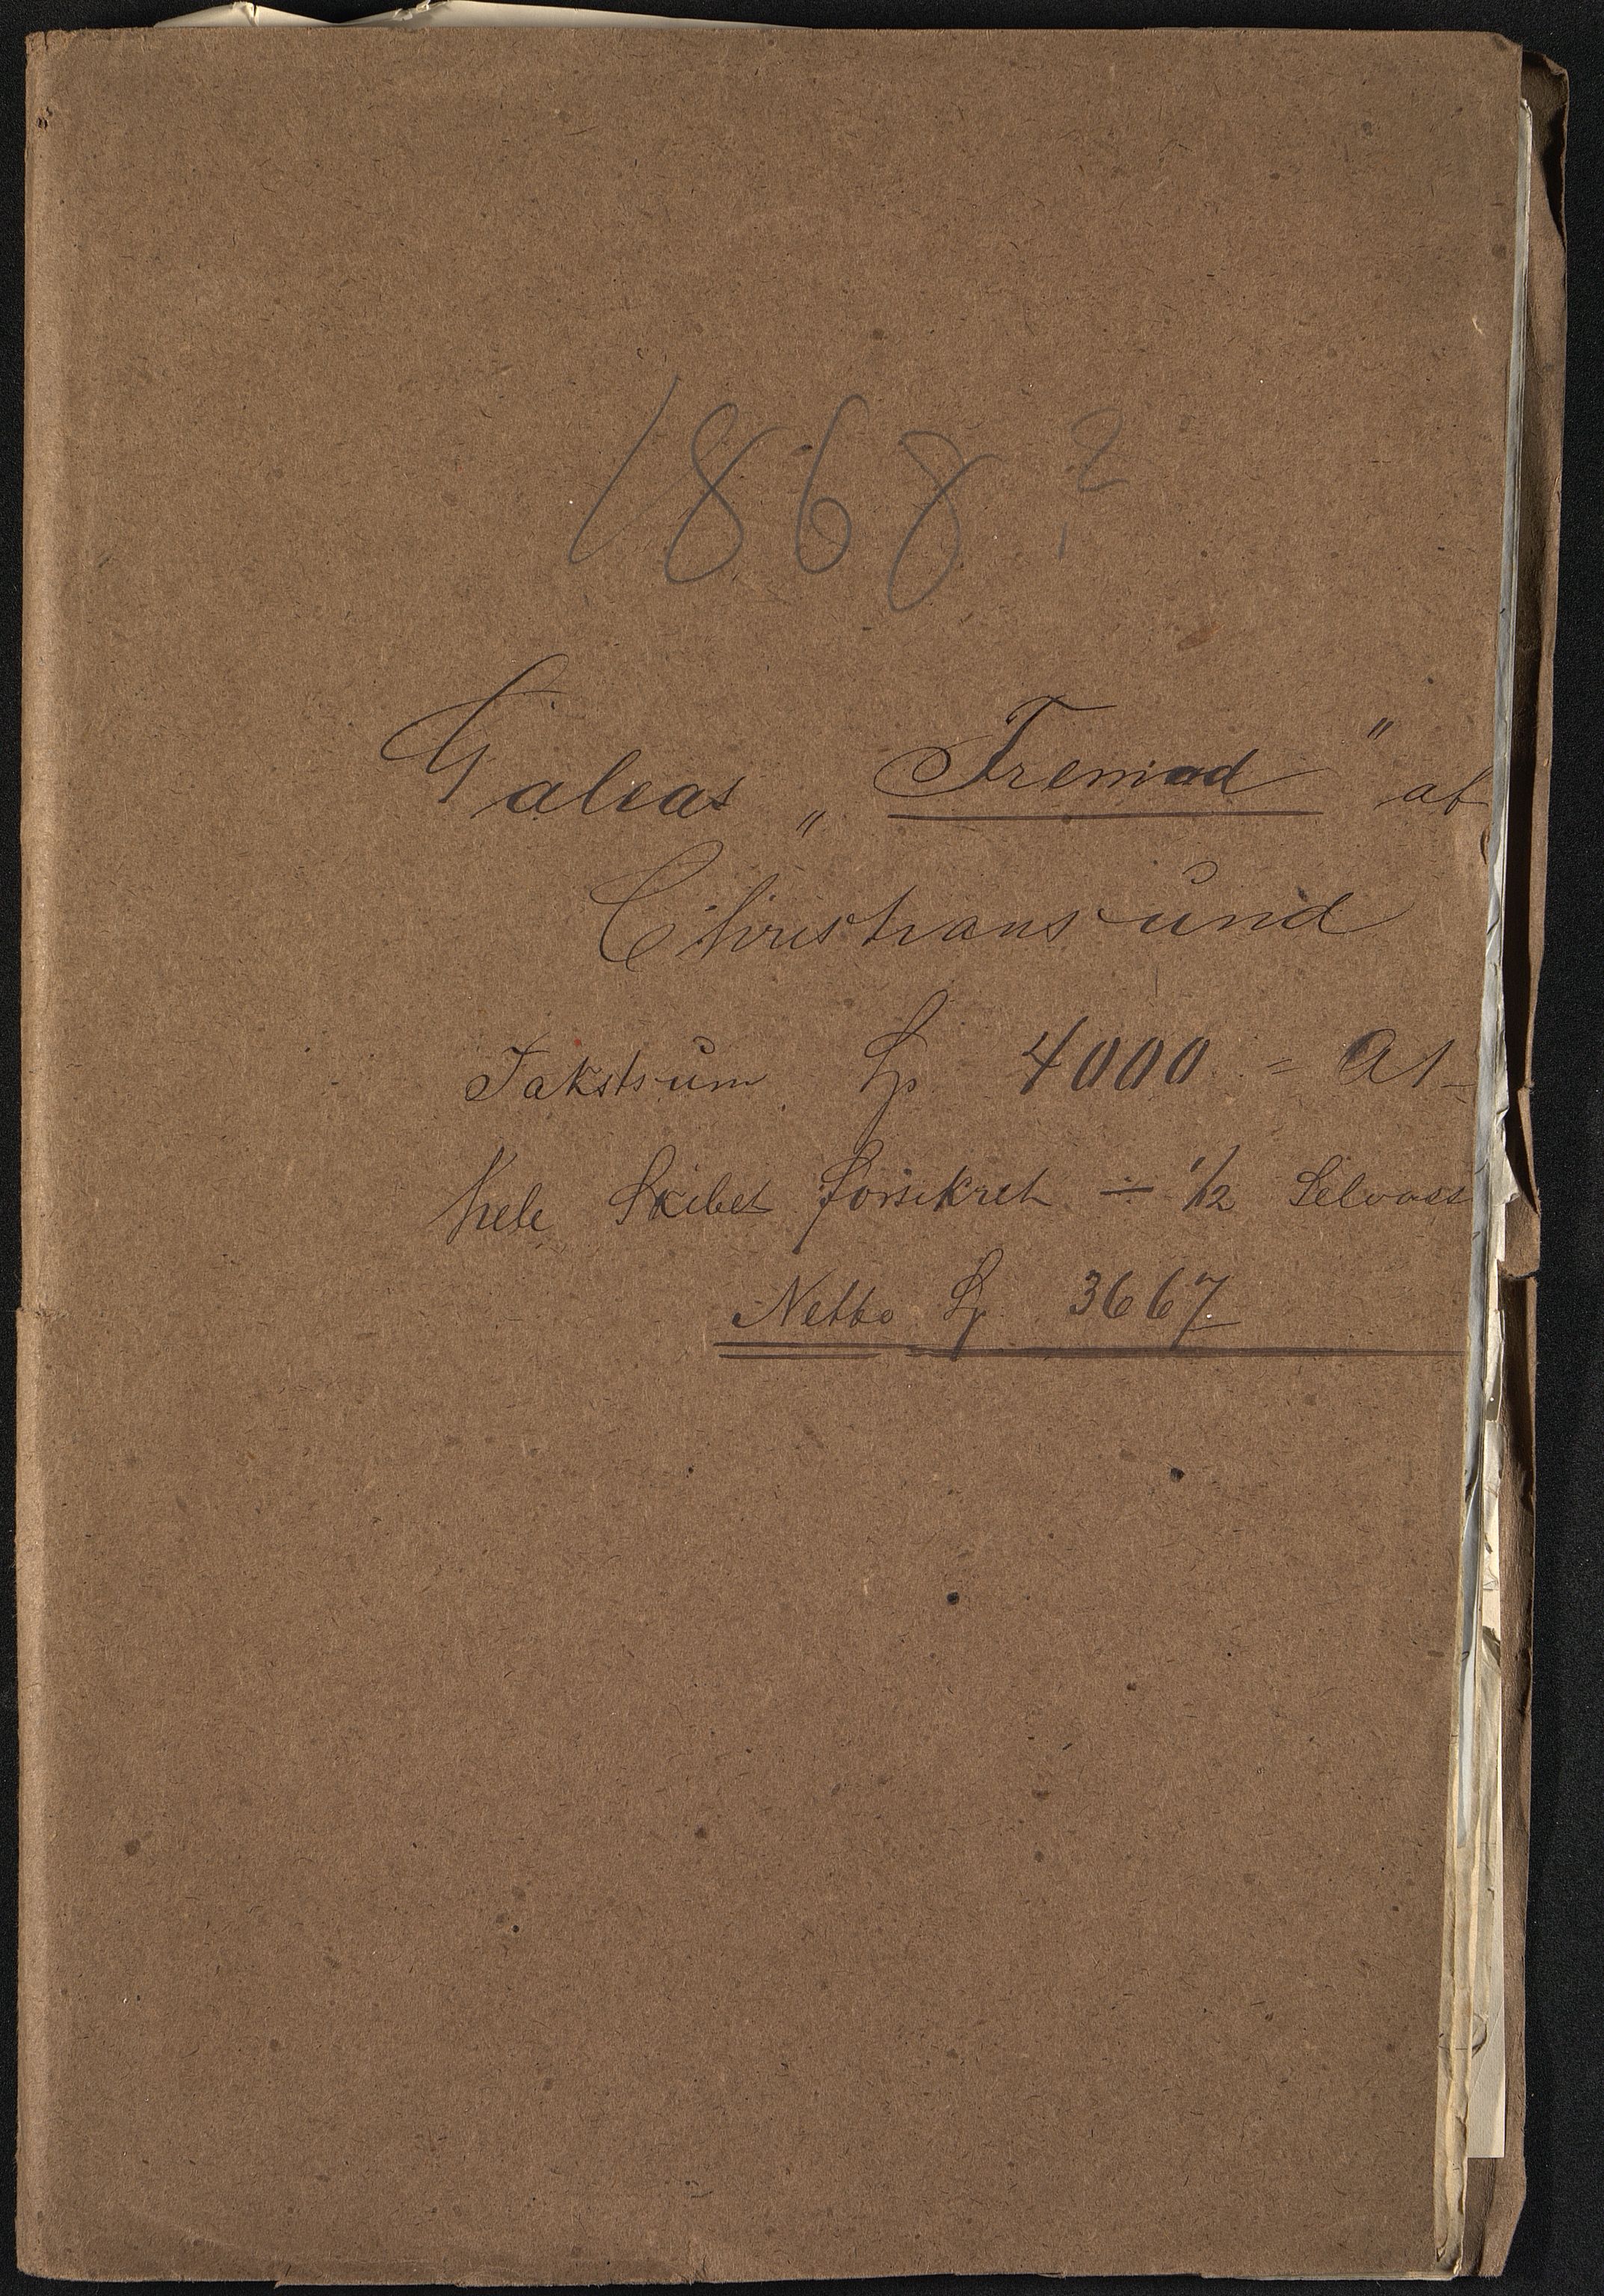 1868?
Galeas „Fremad" af
Christiansund
Takstsum Sp 4000 = A1
Hele Skibet forsikret ÷ 1/12 Selvass
Netto Sp. 3667